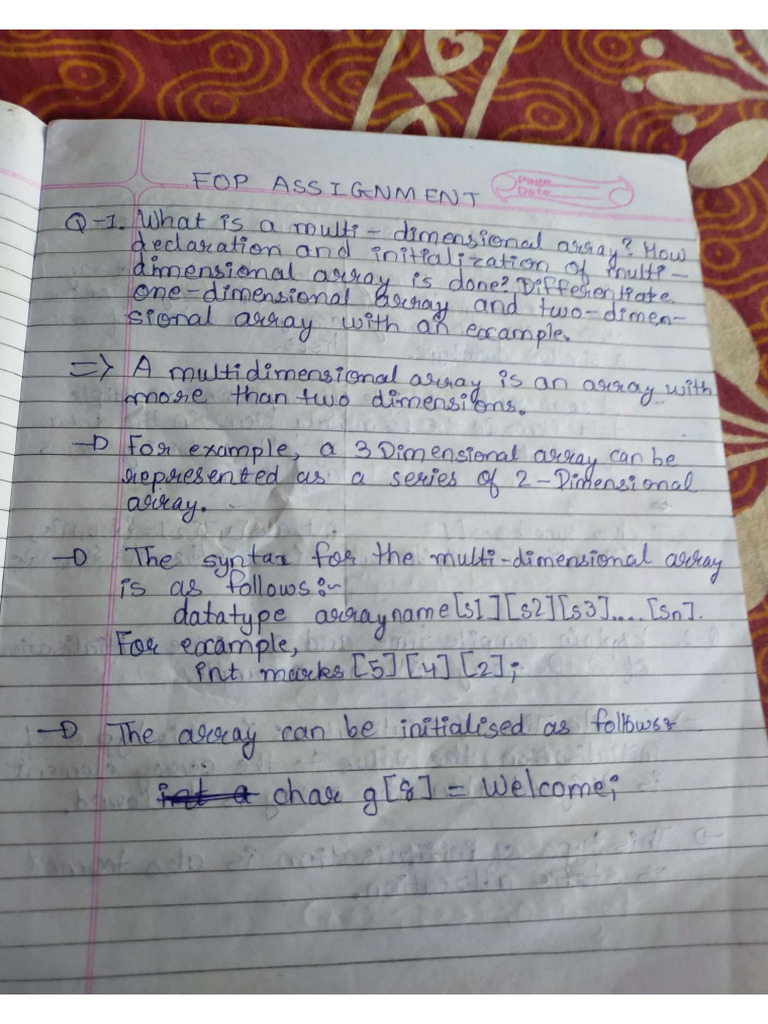 FOP ASSIGNMENT
Page
Date
Q-1. What is a multi-dimensional array? How
declaration and initialization of multi-
dimensional array is done? Differentiate
one-dimensional array and two-dimen-
sional array with an example.
=> A multidimensional array is an array with
more than two dimensions.
For example, a 3 Dimensional array can be
represented as a series of 2-Dimensional
array.
The syntax for the multi-dimensional array
is as follows:-
datatype arrayname[s1][s2][s3]....[sn].
For example,
int marks [5][4][2];
The array can be initialised as follows:
char g[8] = Welcome;